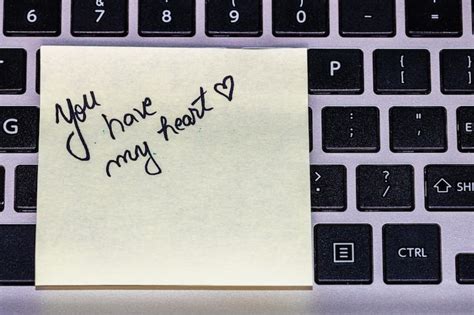 ^ 6
& 7
* 8
( 9
) 0
You
have
my heart♡
P
{ [
} ]
G
: ;
" '
> .
? /
SHI
CTRL